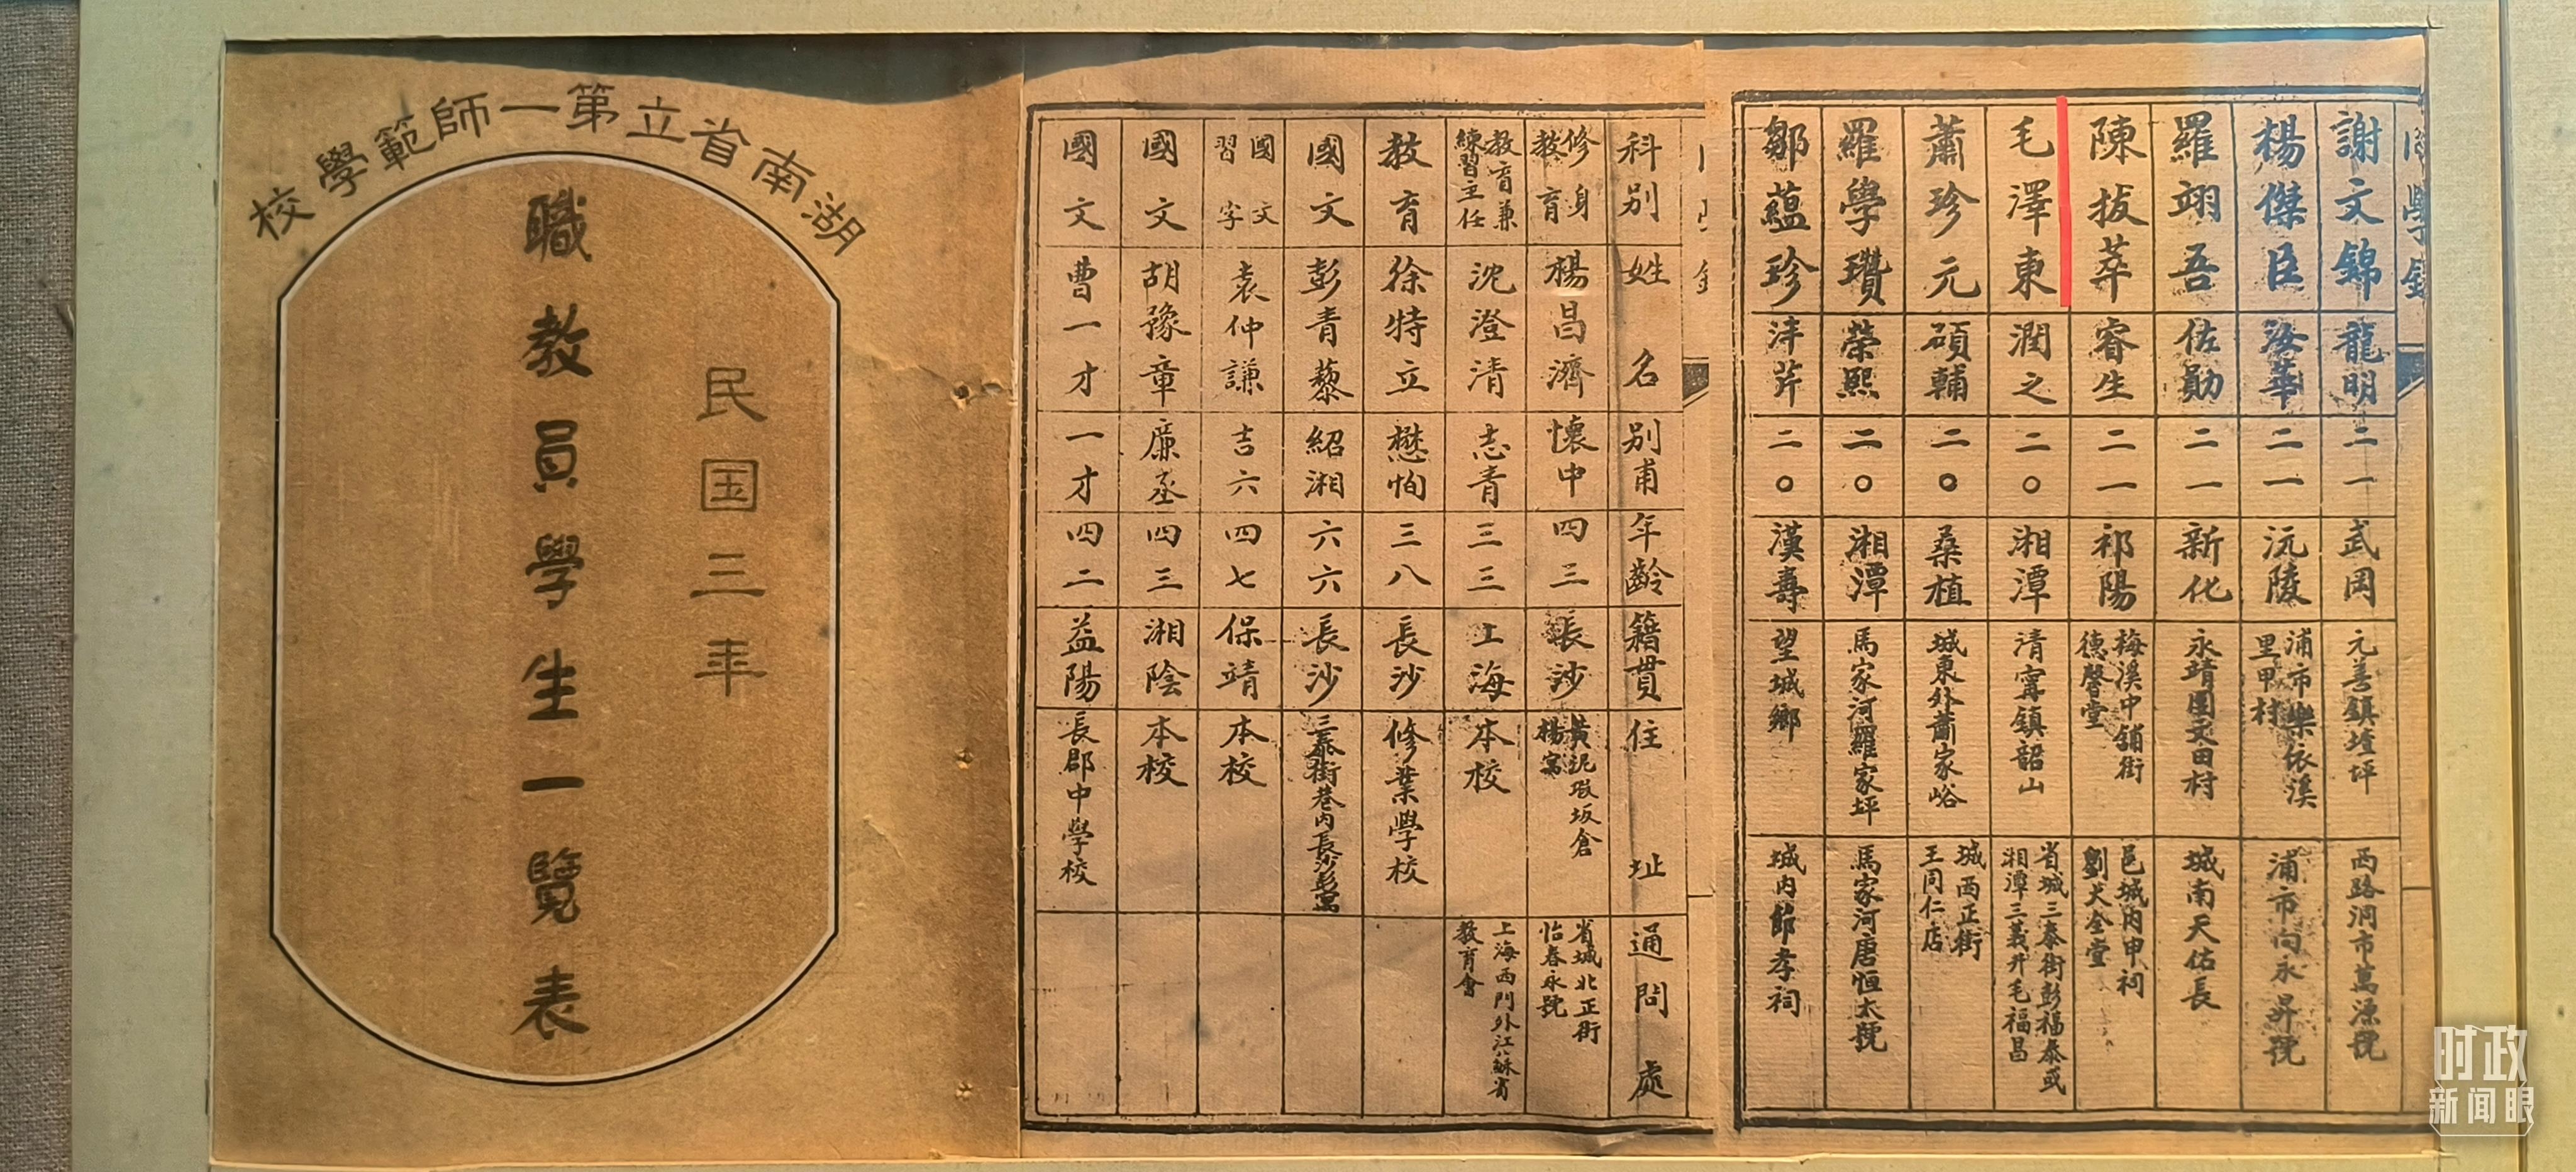 湖南省立第一師範學校
民国三年
職教員學生一覽表
科别 姓名 别甫 年齡 籍貫 住址 通問處
修身教育 楊昌濟 懷中 四三 長沙 黄泥塅坂倉楊寓 省城北正街怡春永號
教育兼練習主任 沈澄清 志青 三三 上海 本校 上海西門外江蘇省教育會
教育 徐特立 懋恂 三八 長沙 修業學校
國文 彭青藜 紹湘 六六 長沙 三泰街巷内長沙彭寓
國文習字 袁仲謙 吉六 四七 保靖 本校
國文 胡豫章 廉丞 四三 湘陰 本校
國文 曹一才 一才 四二 益陽 長郡中學校
同學錄
謝文錦 龍明 二一 武岡 元善鎮堎坪 西路洞市萬源號
楊傑臣 海華 二一 沅陵 浦市樂依溪里甲村 浦市向永昇號
羅翊吾 佐勛 二一 新化 永靖團文田村 城南天佑長
陳拔萃 睿生 二一 祁陽 梅溪中舖街德馨堂 邑城内申祠劉大全堂
毛澤東 潤之 二〇 湘潭 清寗鎮韶山 省城三泰街彭福泰或湘潭三義升毛福昌
蕭珍元 碩輔 二〇 桑植 城東外蕭家峪 城西正街王同仁店
羅學瓚 榮熙 二〇 湘潭 馬家河羅家坪 馬家河唐恒太號
鄒蘊珍 泮芹 二〇 漢壽 望城鄉 城内節孝祠
时政
新闻眼